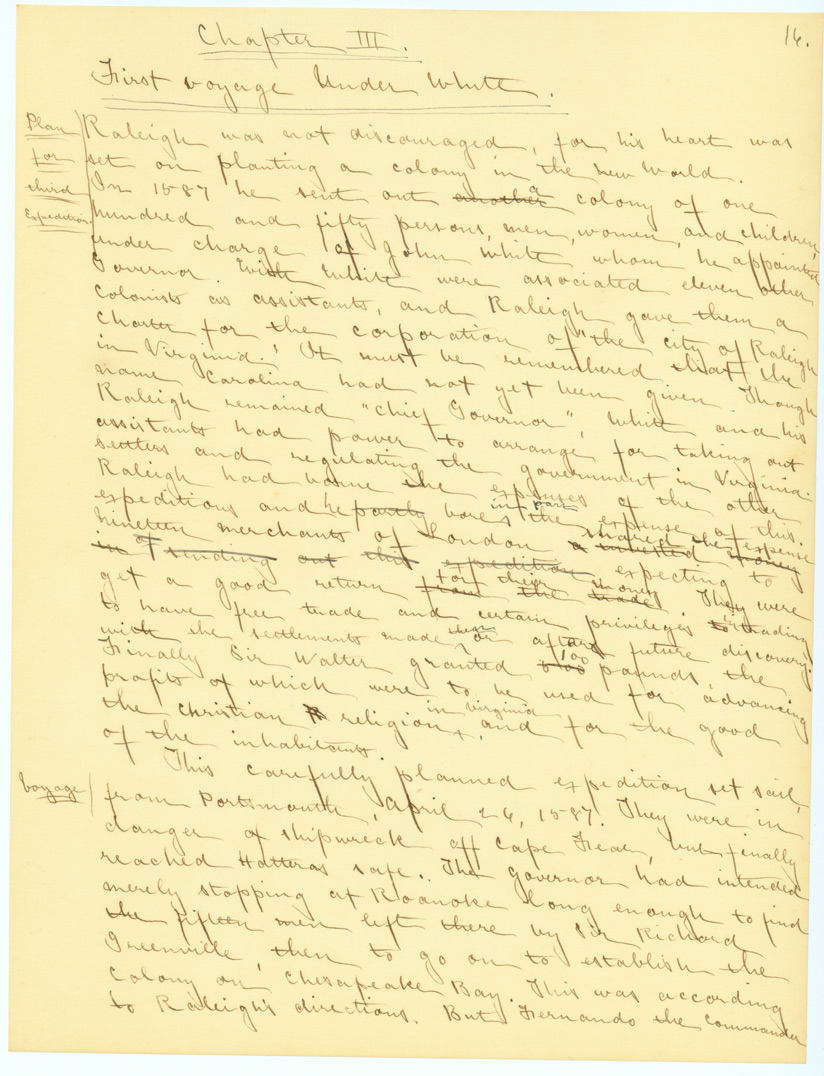 16.
Chapter III.
First voyage Under White.
Plan for third Expedition
Raleigh was not discouraged, for his heart was
set on planting a colony in the new World.
In 1587 he sent out another a colony of one
hundred and fifty persons, men, women, and children,
under charge of John White whom he appointed
Governor. With White were associated eleven other
colonists as assistants, and Raleigh gave them a
charter for the corporation of "the city of Raleigh
in Virginia." It must be remembered that the
name Carolina had not yet been given. Though
Raleigh remained "chief Governor", White and his
assistants had power to arrange for taking out
settlers and regulating the government in Virginia.
Raleigh had borne the expenses of the other
expeditions and he partly bore in part the expense of this.
Nineteen merchants of London a invested shared the money expense
in of sending out this expedition expecting to
get a good return from the trade for their money. They were
to have free trade and certain privileges to in trading
with the settlements made then or after future discovery.
Finally Sir Walter granted 100 pounds, the
profits of which were to be used for advancing
the christian religion in Virginia, and for the good
of the inhabitants.
Voyage
This carefully planned expedition set sail
from Portsmouth, April 26, 1587. They were in
danger of shipwreck off Cape Fear, but finally
reached Hatteras safe. The governor had intended
merely stopping at Roanoke long enough to find
the fifteen men left there by Sir Richard
Greenville, then to go on to establish the
colony on Chesapeake Bay. This was according
to Raleigh's directions. But Fernando the commander